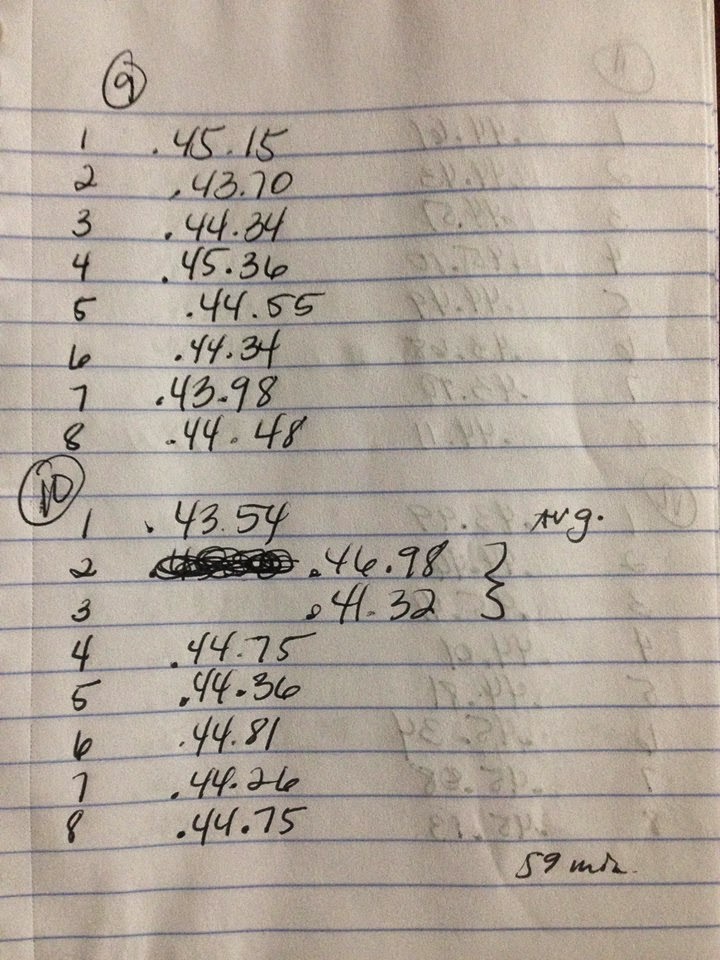 9
1 .45.15
2 .43.70
3 .44.34
4 .45.36
5 .44.55
6 .44.34
7 .43.98
8 .44.48
10
1 .43.54 Avg.
2 .46.98 }
3 .41.32
4 .44.75
5 .44.36
6 .44.81
7 .44.26
8 .44.75
59 min.